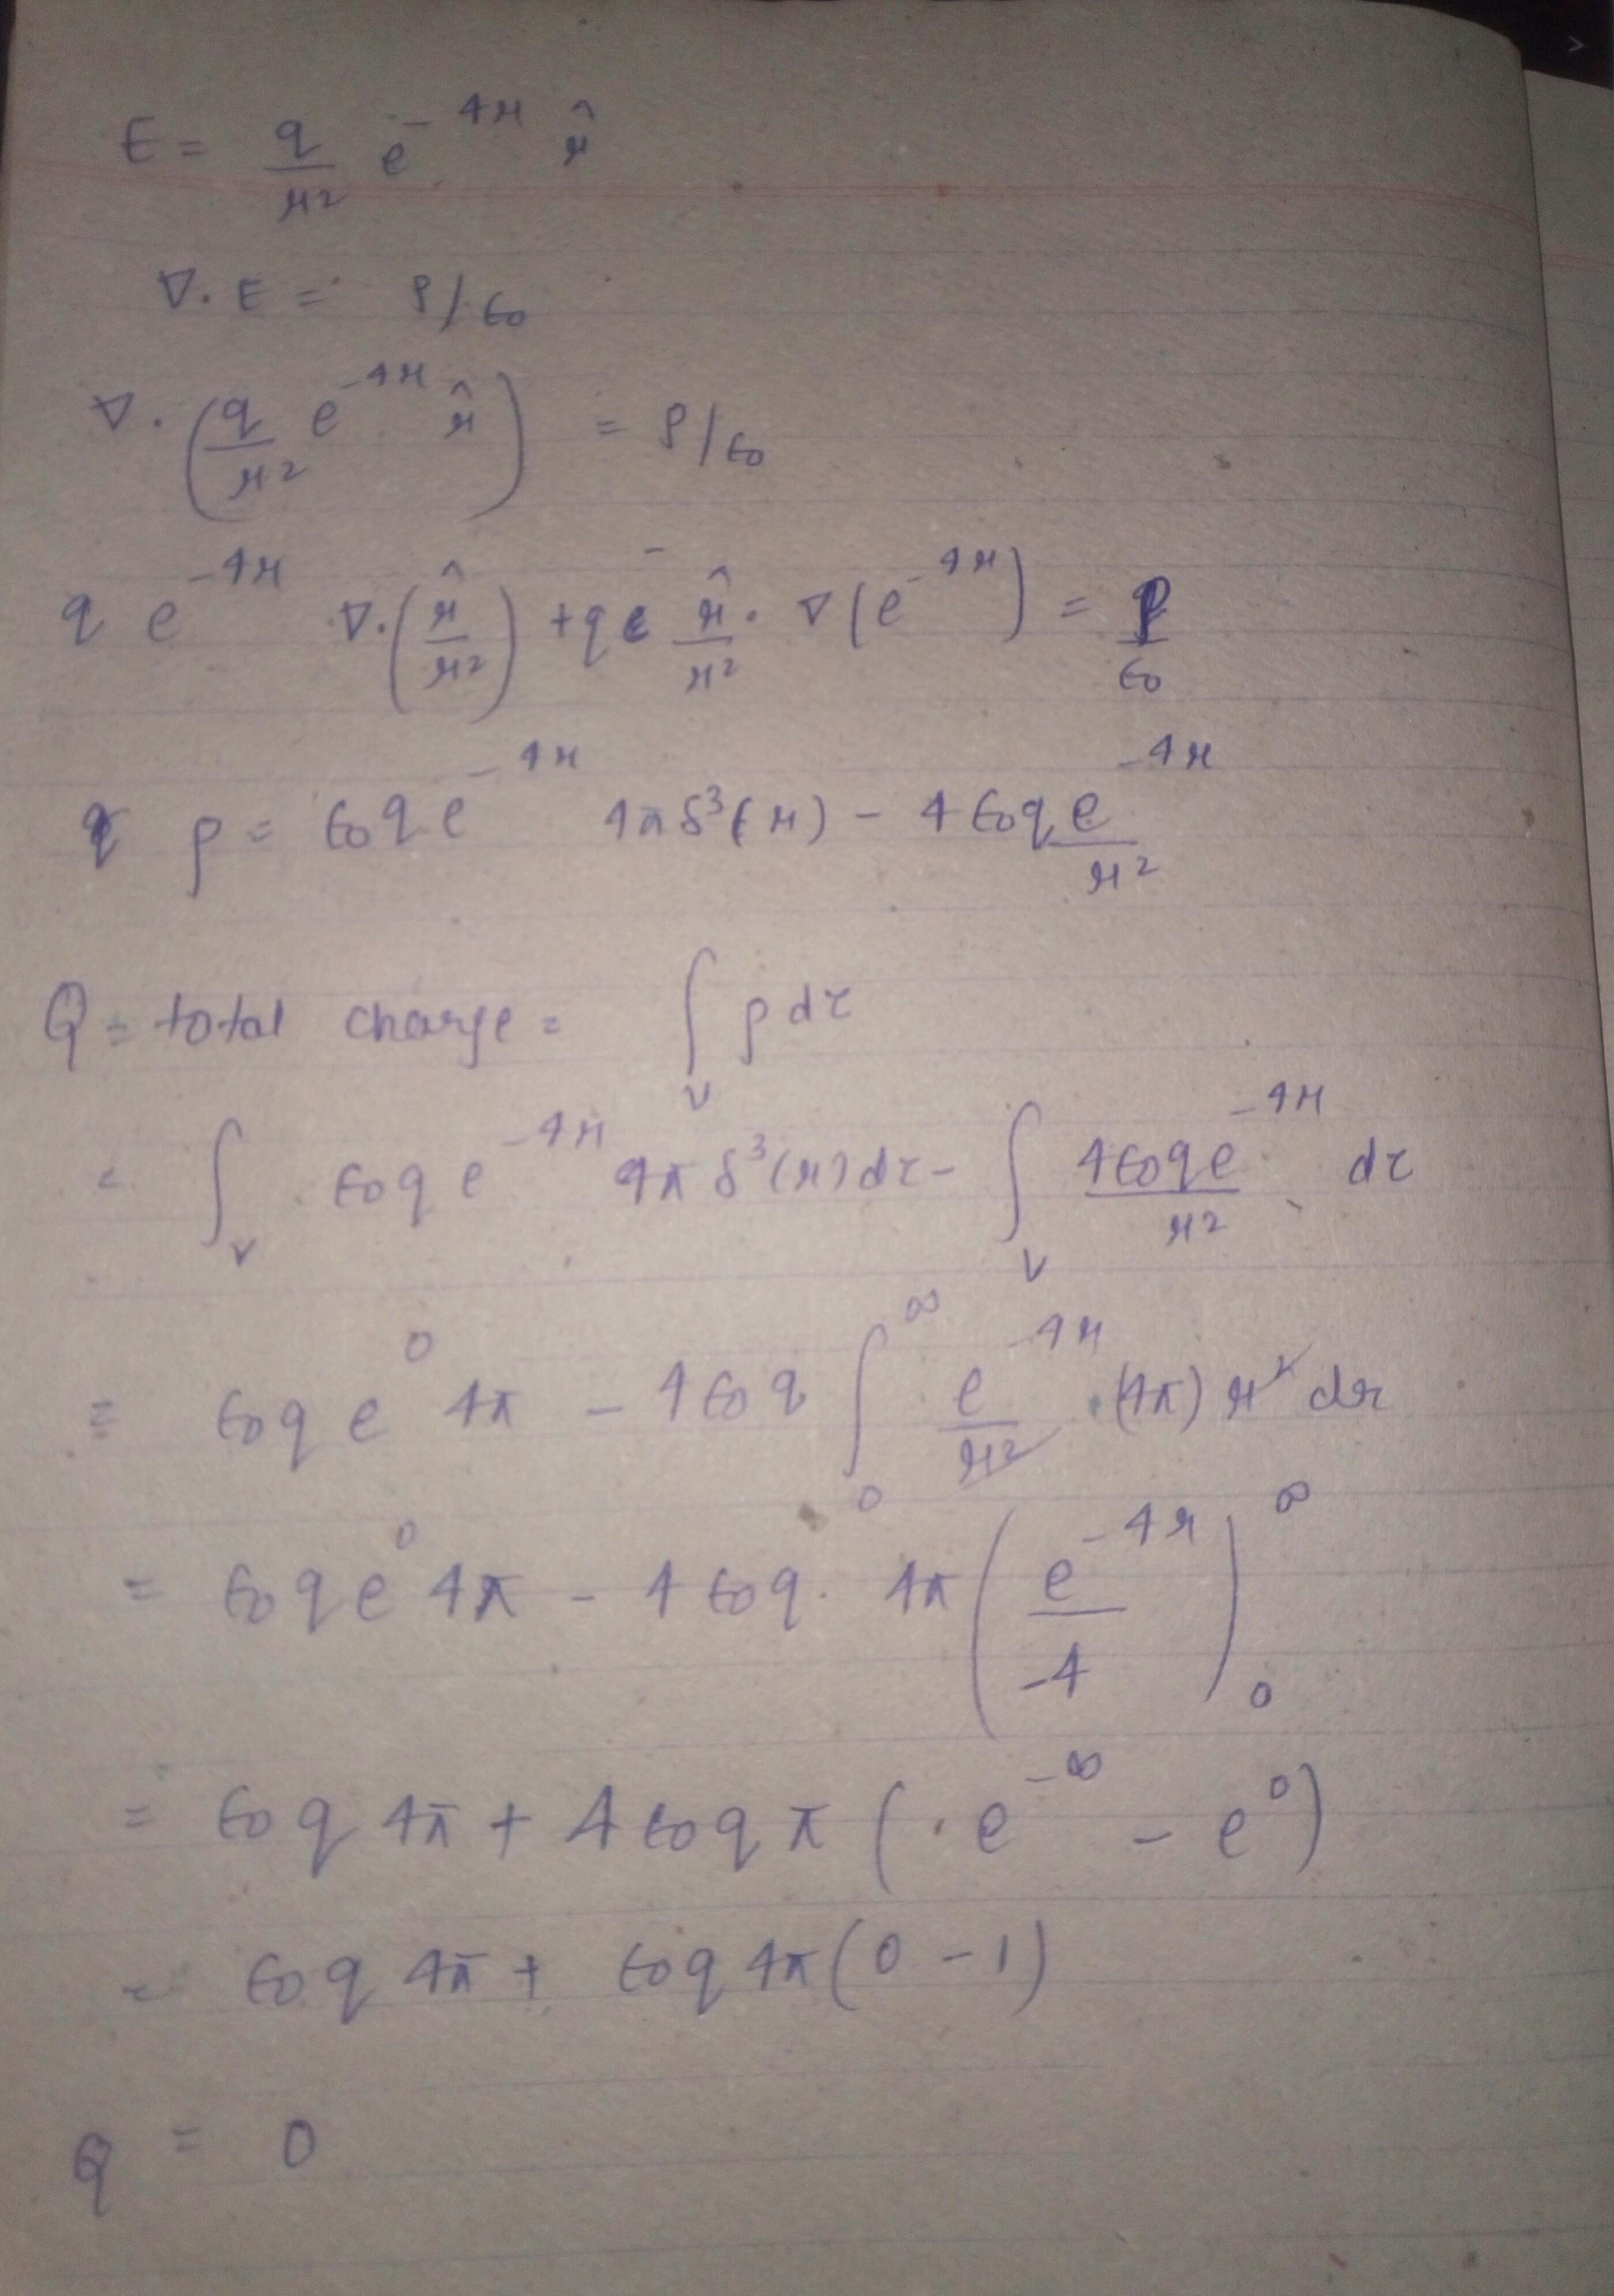 E = q/r² e^{-4r} r̂
∇. E = ρ/ε₀
∇. (q/r² e^{-4r} r̂) = ρ/ε₀
q e^{-4r} ∇.(r̂/r²) + q r̂/r² . ∇(e^{-4r}) = ρ/ε₀
ρ = ε₀ q e^{-4r} 4π δ³(r) - 4 ε₀ q e^{-4r}/r²
Q = total charge = ∫_V ρ dτ
= ∫_V ε₀ q e^{-4r} 4π δ³(r) dτ - ∫_V 4 ε₀ q e^{-4r}/r² dτ
= ε₀ q e⁰ 4π - 4 ε₀ q ∫₀^∞ e^{-4r}/r² . (4π) r² dr
= ε₀ q e⁰ 4π - 4 ε₀ q . 4π (e^{-4r}/-4)₀^∞
= ε₀ q 4π + 4 ε₀ q π (e^{-∞} - e⁰)
= ε₀ q 4π + ε₀ q 4π (0 - 1)
Q = 0